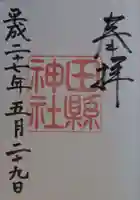 奉拝
田縣神社
平成二十七年五月二十九日